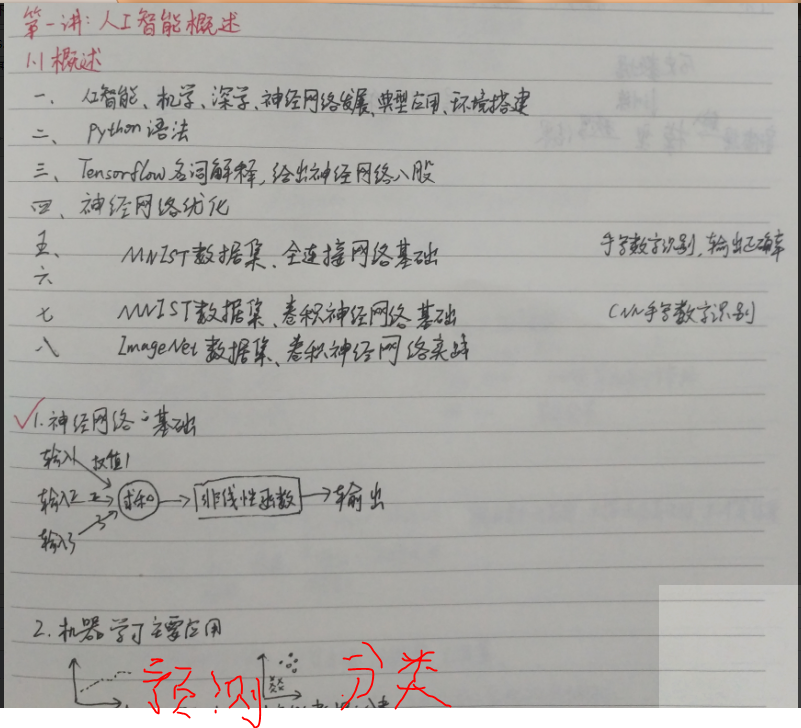 第一讲:人工智能概述
1.1 概述
一、人工智能、机学、深学、神经网络发展、典型应用、环境搭建
二、Python语法
三、Tensorflow名词解释,给出神经网络八股
四、神经网络优化
五、MNIST数据集、全连接网络基础 手写数字识别,输出正确率
六
七 MNIST数据集、卷积神经网络基础 CNN手写数字识别
八 ImageNet数据集、卷积神经网络实践
1.神经网络之基础
输入1 权值1
输入2 2 求和 非线性函数 输出
输入3 3
2.机器学习主要应用
预测 分类